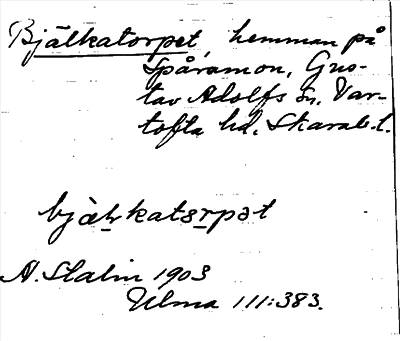 Bjälkatorpet, hemman på
Spåramon, Gus-
tav Adolfs sn. Var-
tofta hd. Skarab. l.
bjälkatorpət
A. Stalin 1903
Ulma 111:383.